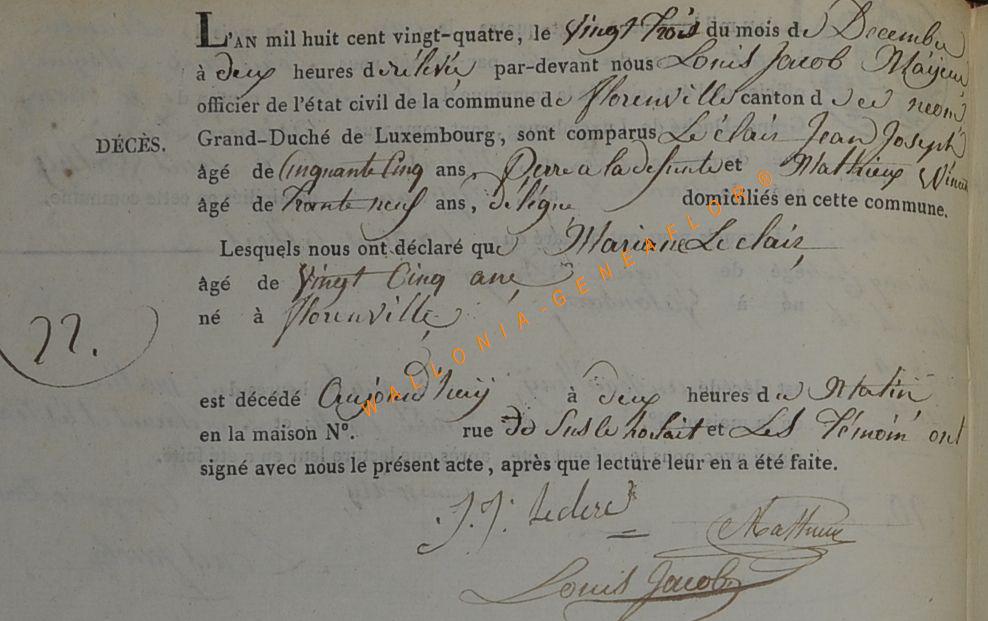 L'AN mil huit cent vingt-quatre, le Vingt trois du mois de Decembre
à deux heures de rélévée par-devant nous Louis Jacob Mayeur
officier de l'état civil de la commune de florenville canton d
DÉCÈS. Grand-Duché de Luxembourg, sont comparus Leclair Jean Joseph
âgé de Cinquante Cinq ans, Perre a la defunte et Mathieux
âgé de trante neuf ans, domiciliés en cette commune.
Lesquels nous ont déclaré que Marianne Leclair
âgé de Vingt Cinq ans
né à florenville
22.
est décédé aujourd'huij à deux heures du Matin
en la maison N°. rue de et Les témoin ont
signé avec nous le présent acte, après que lecture leur en a été faite.
J. J. Leclere
Mathieux
Louis Jacob
WALLONIA-GENEAFLOR®